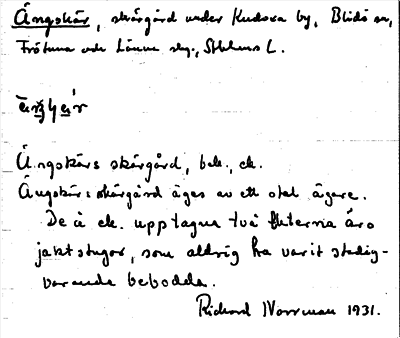 Ängskär, skärgård under Kudoxa by, Blidö sn,
Frötuna och Länna skg., Sthlms L.
Ängskärs skärgård, bek., ek.
Ängskärs skärgård äges av ett otal ägare.
De å ek. upptagna två tterna äro
jaktstugor, som aldrig ha varit stadig-
varande bebodda.
Richard Norrman 1931.